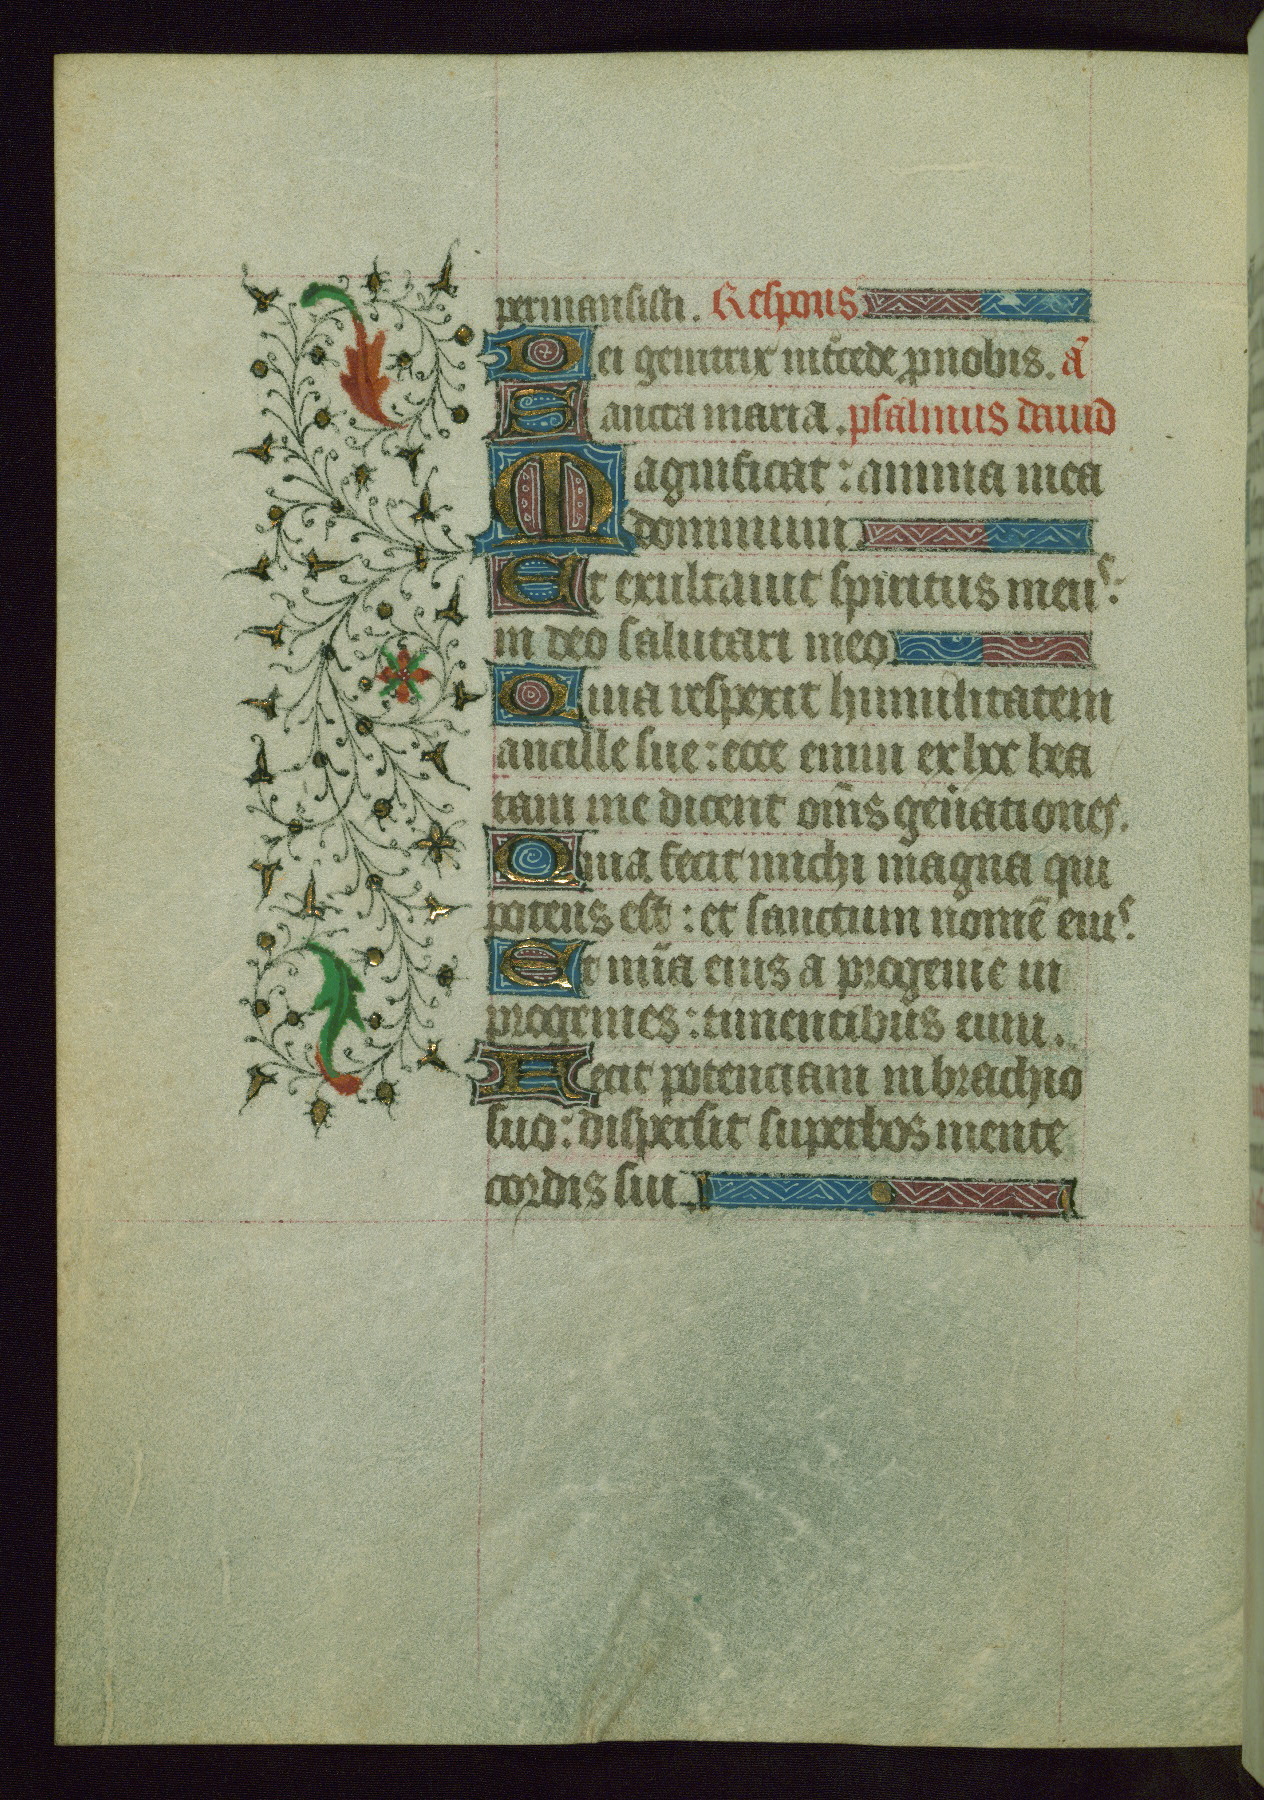 permansisti. Respons
Dei genitrix int̄cede pnobis. ā
Sancta maria. psalmus dauid
Magnificat : anima mea
dominum
Et exultauit spiritus meus :
in deo salutari meo
Quia respexit humilitatem
ancille sue : ecce enim ex hoc bea
tam me dicent om̄s gen̄ationes.
Quia fecit michi magna qui
potens est : et sanctum nomē eius.
Et mīa eius a progenie in
progenies : timentibus eum.
Fecit potenciam in brachio
suo : dispersit superbos mente
cordis sui